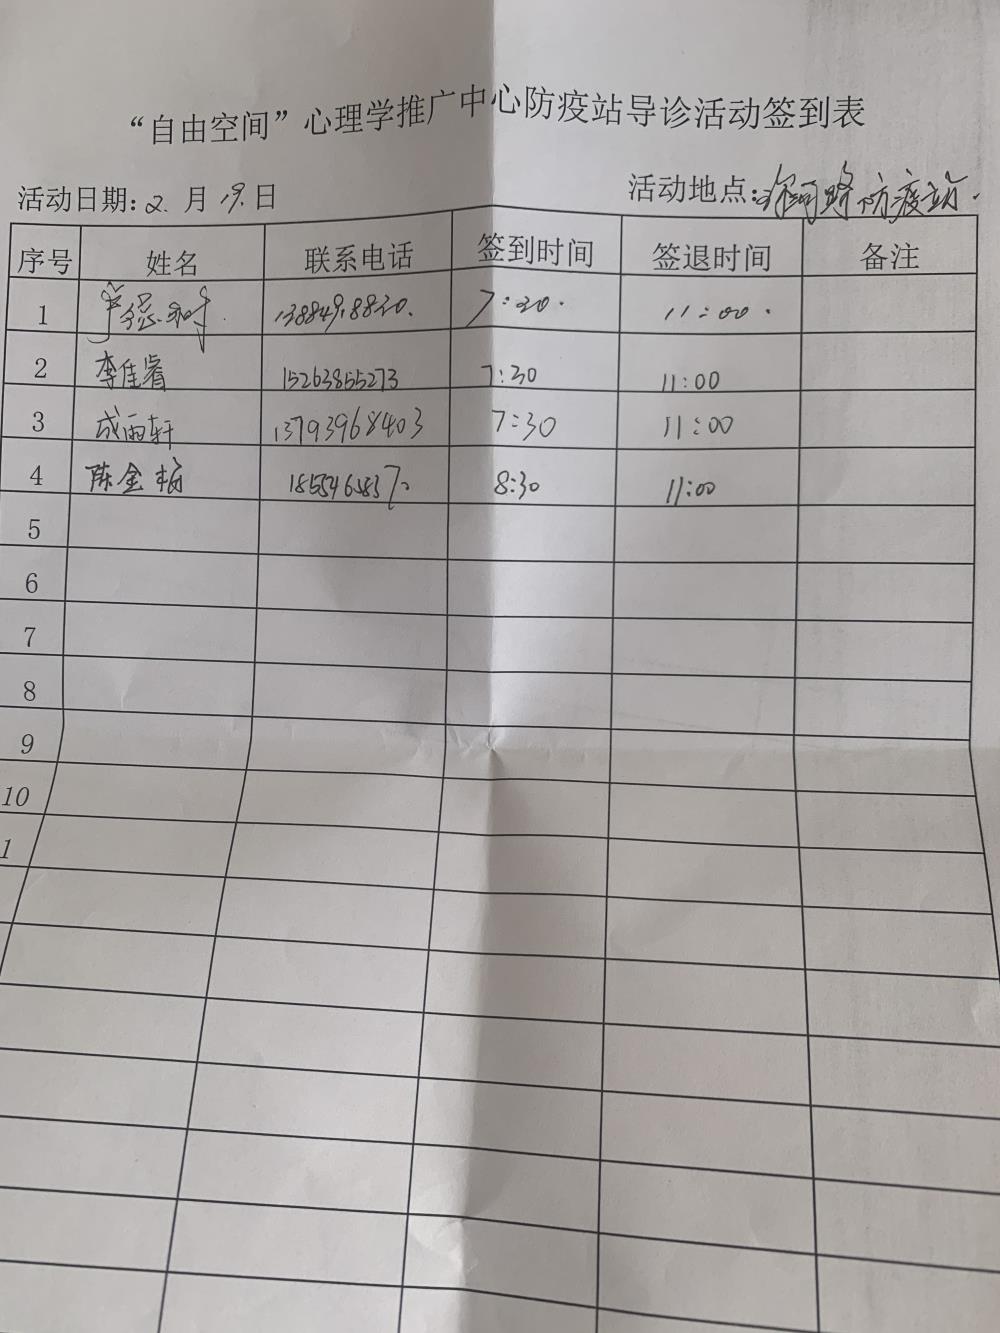 “自由空间”心理学推广中心防疫站导诊活动签到表
活动日期: 2. 月 19. 日 活动地点: 路防疫站.
序号 姓名 联系电话 签到时间 签退时间 备注
1 7:30. 11:00.
2 李佳睿 15263855273 7:30 11:00
3 成雨轩 13793968403 7:30 11:00
4 陈金 8:30 11:00
5
6
7
8
9
10
1